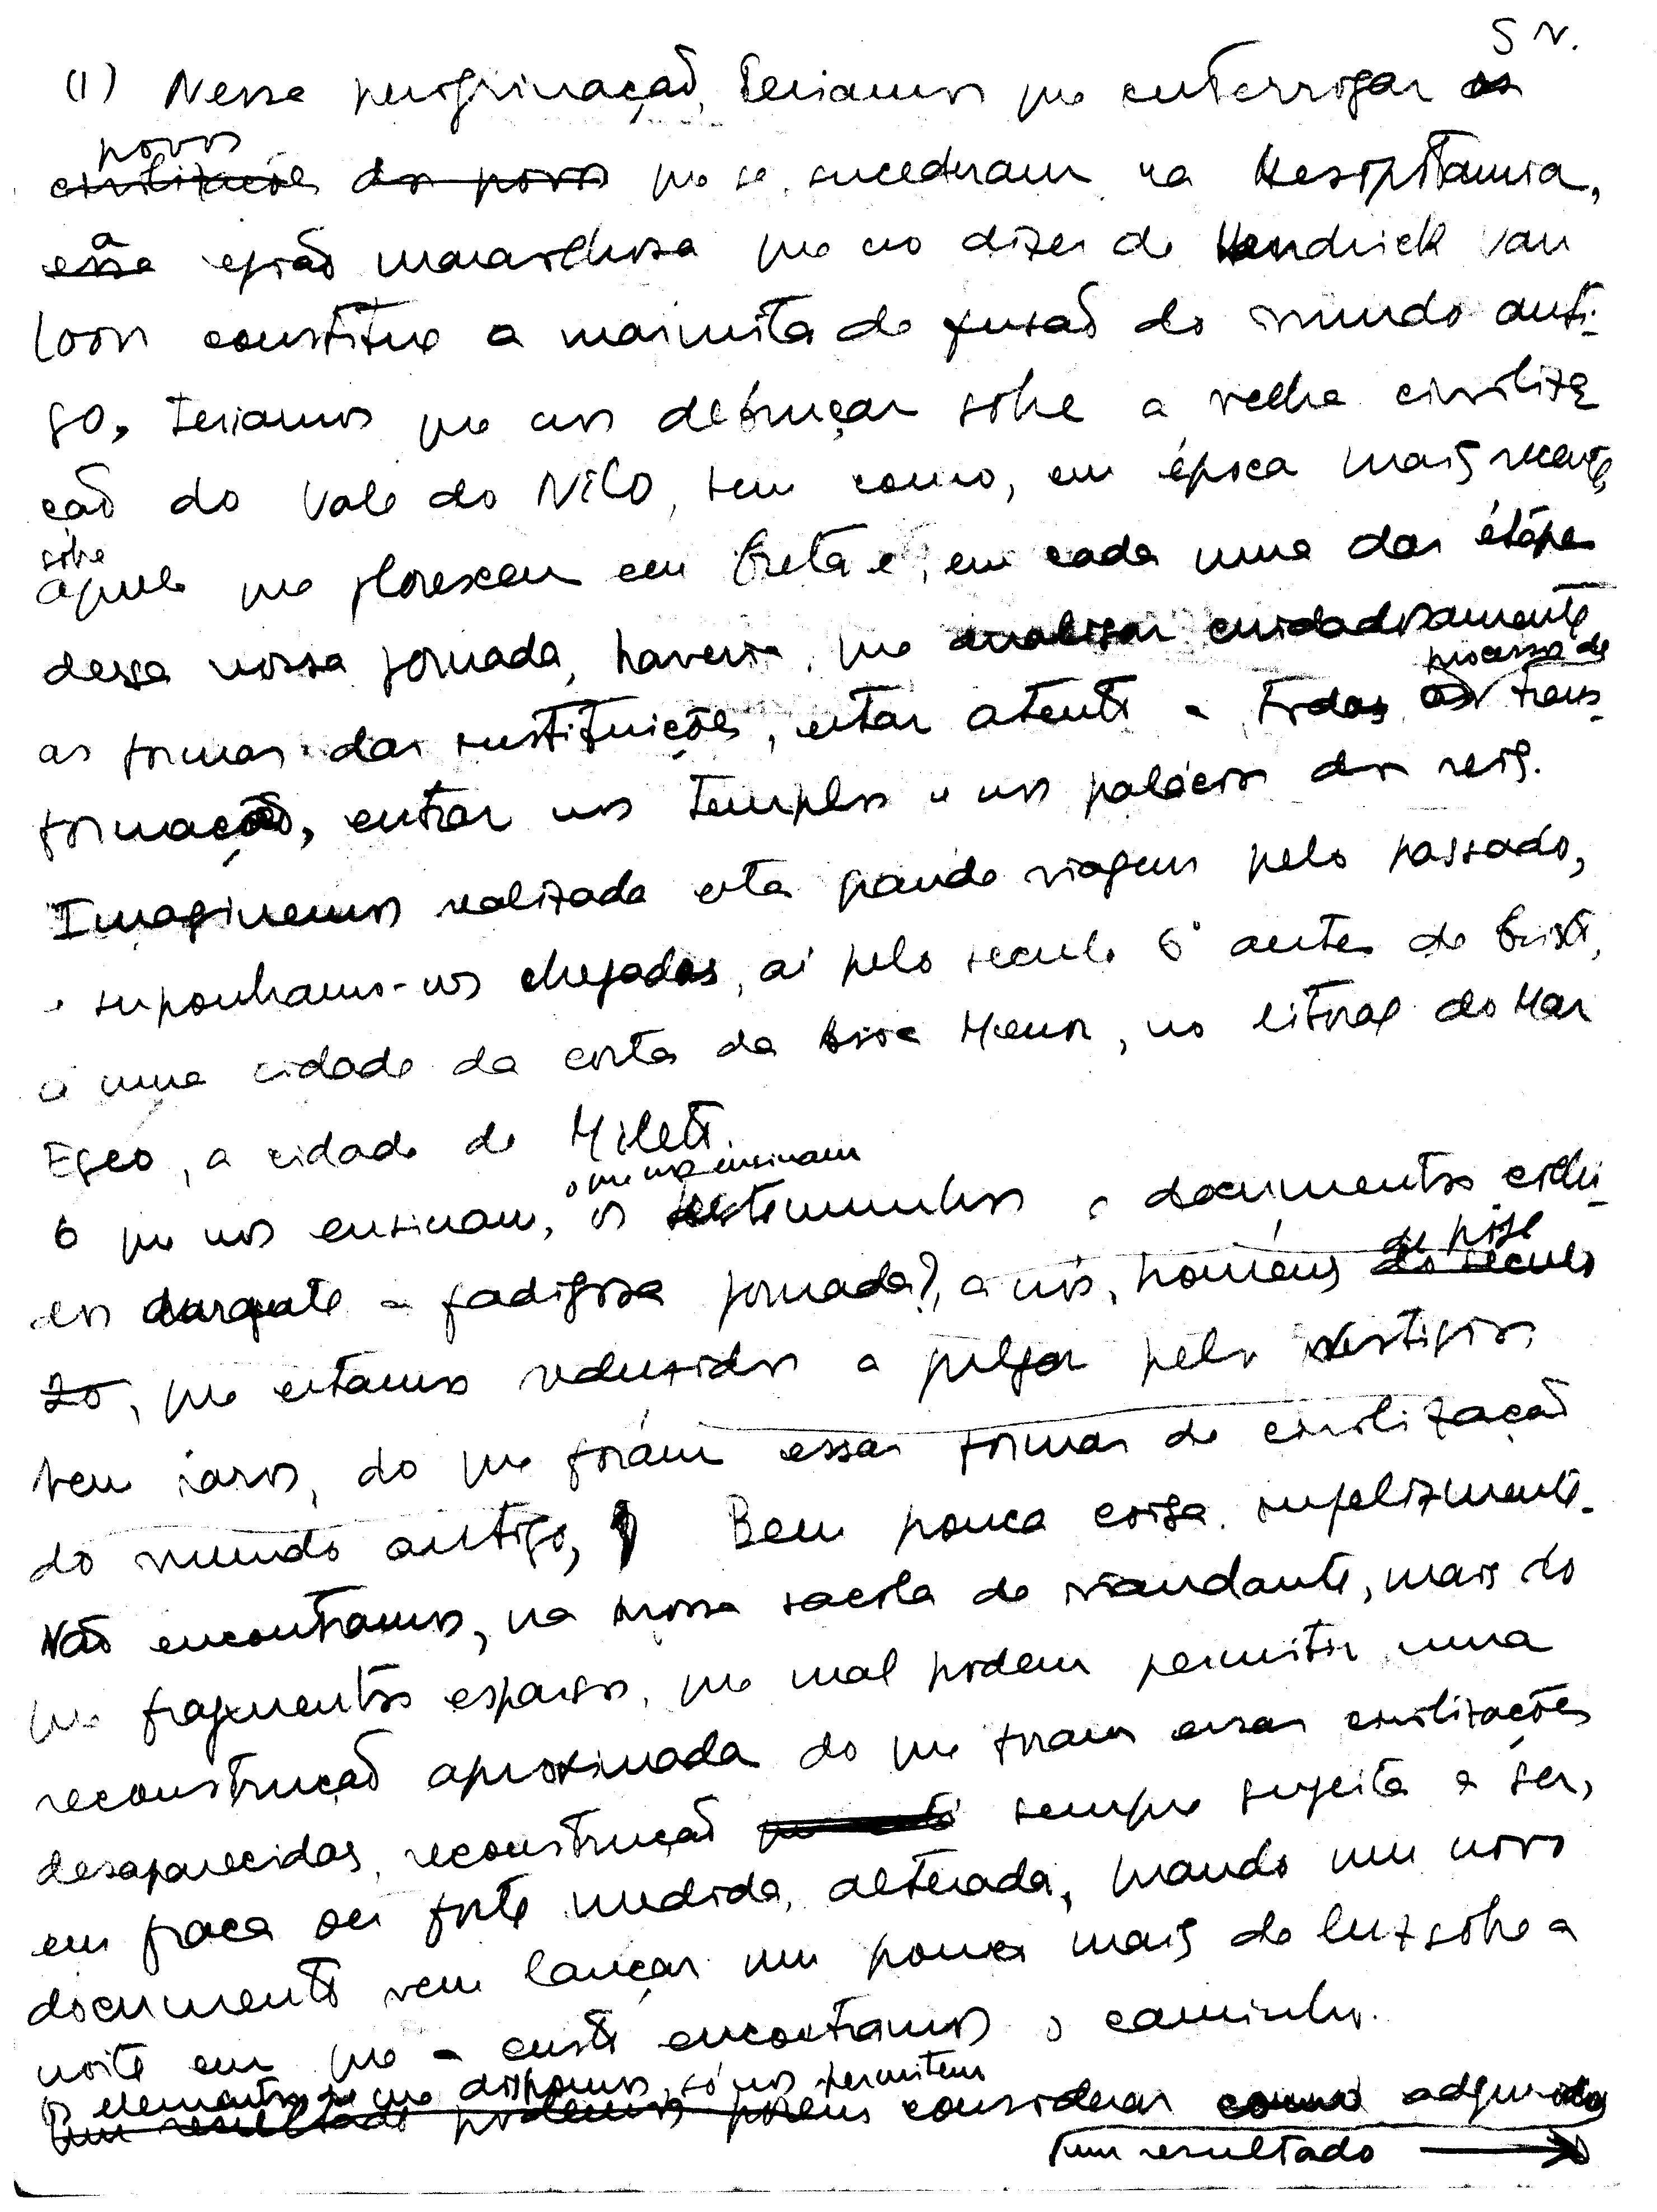 S N.
(1) Nessa peregrinação, teriamos que enterrogar os
povos
civilizações dos povos que se sucederam na Mesopotamia,
a
essa região maravilhosa que no dizer de Hendrick van
Loon constitue a marmita de fusão do mundo anti-
go, teriamos que nos debruçar sôbre a velha civiliza
ção do Vale do Nilo, bem como, em época mais recente,
sôbre
aquela que floresceu em Creta e, em cada uma das étapes
dessa nossa jornada, haveria que analisar cuidadosamente
processo de
as formas das instituições, estar atento a todas as trans-
formação, entrar nos templos e nos palácios dos reis.
Imaginemos realizada esta grande viagem pelo passado,
e suponhamo-nos chegados, aí pelo seculo 6º antes de Cristo,
a uma cidade da costa da Asia Menor, no litoral do Mar
Egeo, a cidade de Mileto.
o que nos ensinam
O que nos ensinam, os testemunhos e documentos colhi-
de hoje
dos durante a fadigosa jornada?, a nós, homens do século
20, que estamos reduzidos a julgar pelos vestigios,
bem raros, do que foram essas formas de civilização
do mundo antigo, ? Bem pouca coisa, infelizmente.
Não encontramos, na nossa sacola de viandante, mais do
que fragmentos esparsos, que mal podem permitir uma
reconstrução aproximada do que foram essas civilizações
desaparecidas, reconstrução que está sempre sujeita a ser,
em fraca ou forte medida, alterada, quando um novo
documento vem lançar um pouco mais de luz sôbre a
noite em que a custo encontramos o caminho.
Os elementos de que dispomos, só nos permitem
Um resultado podemos porem considerar como adquirido
um resultado →